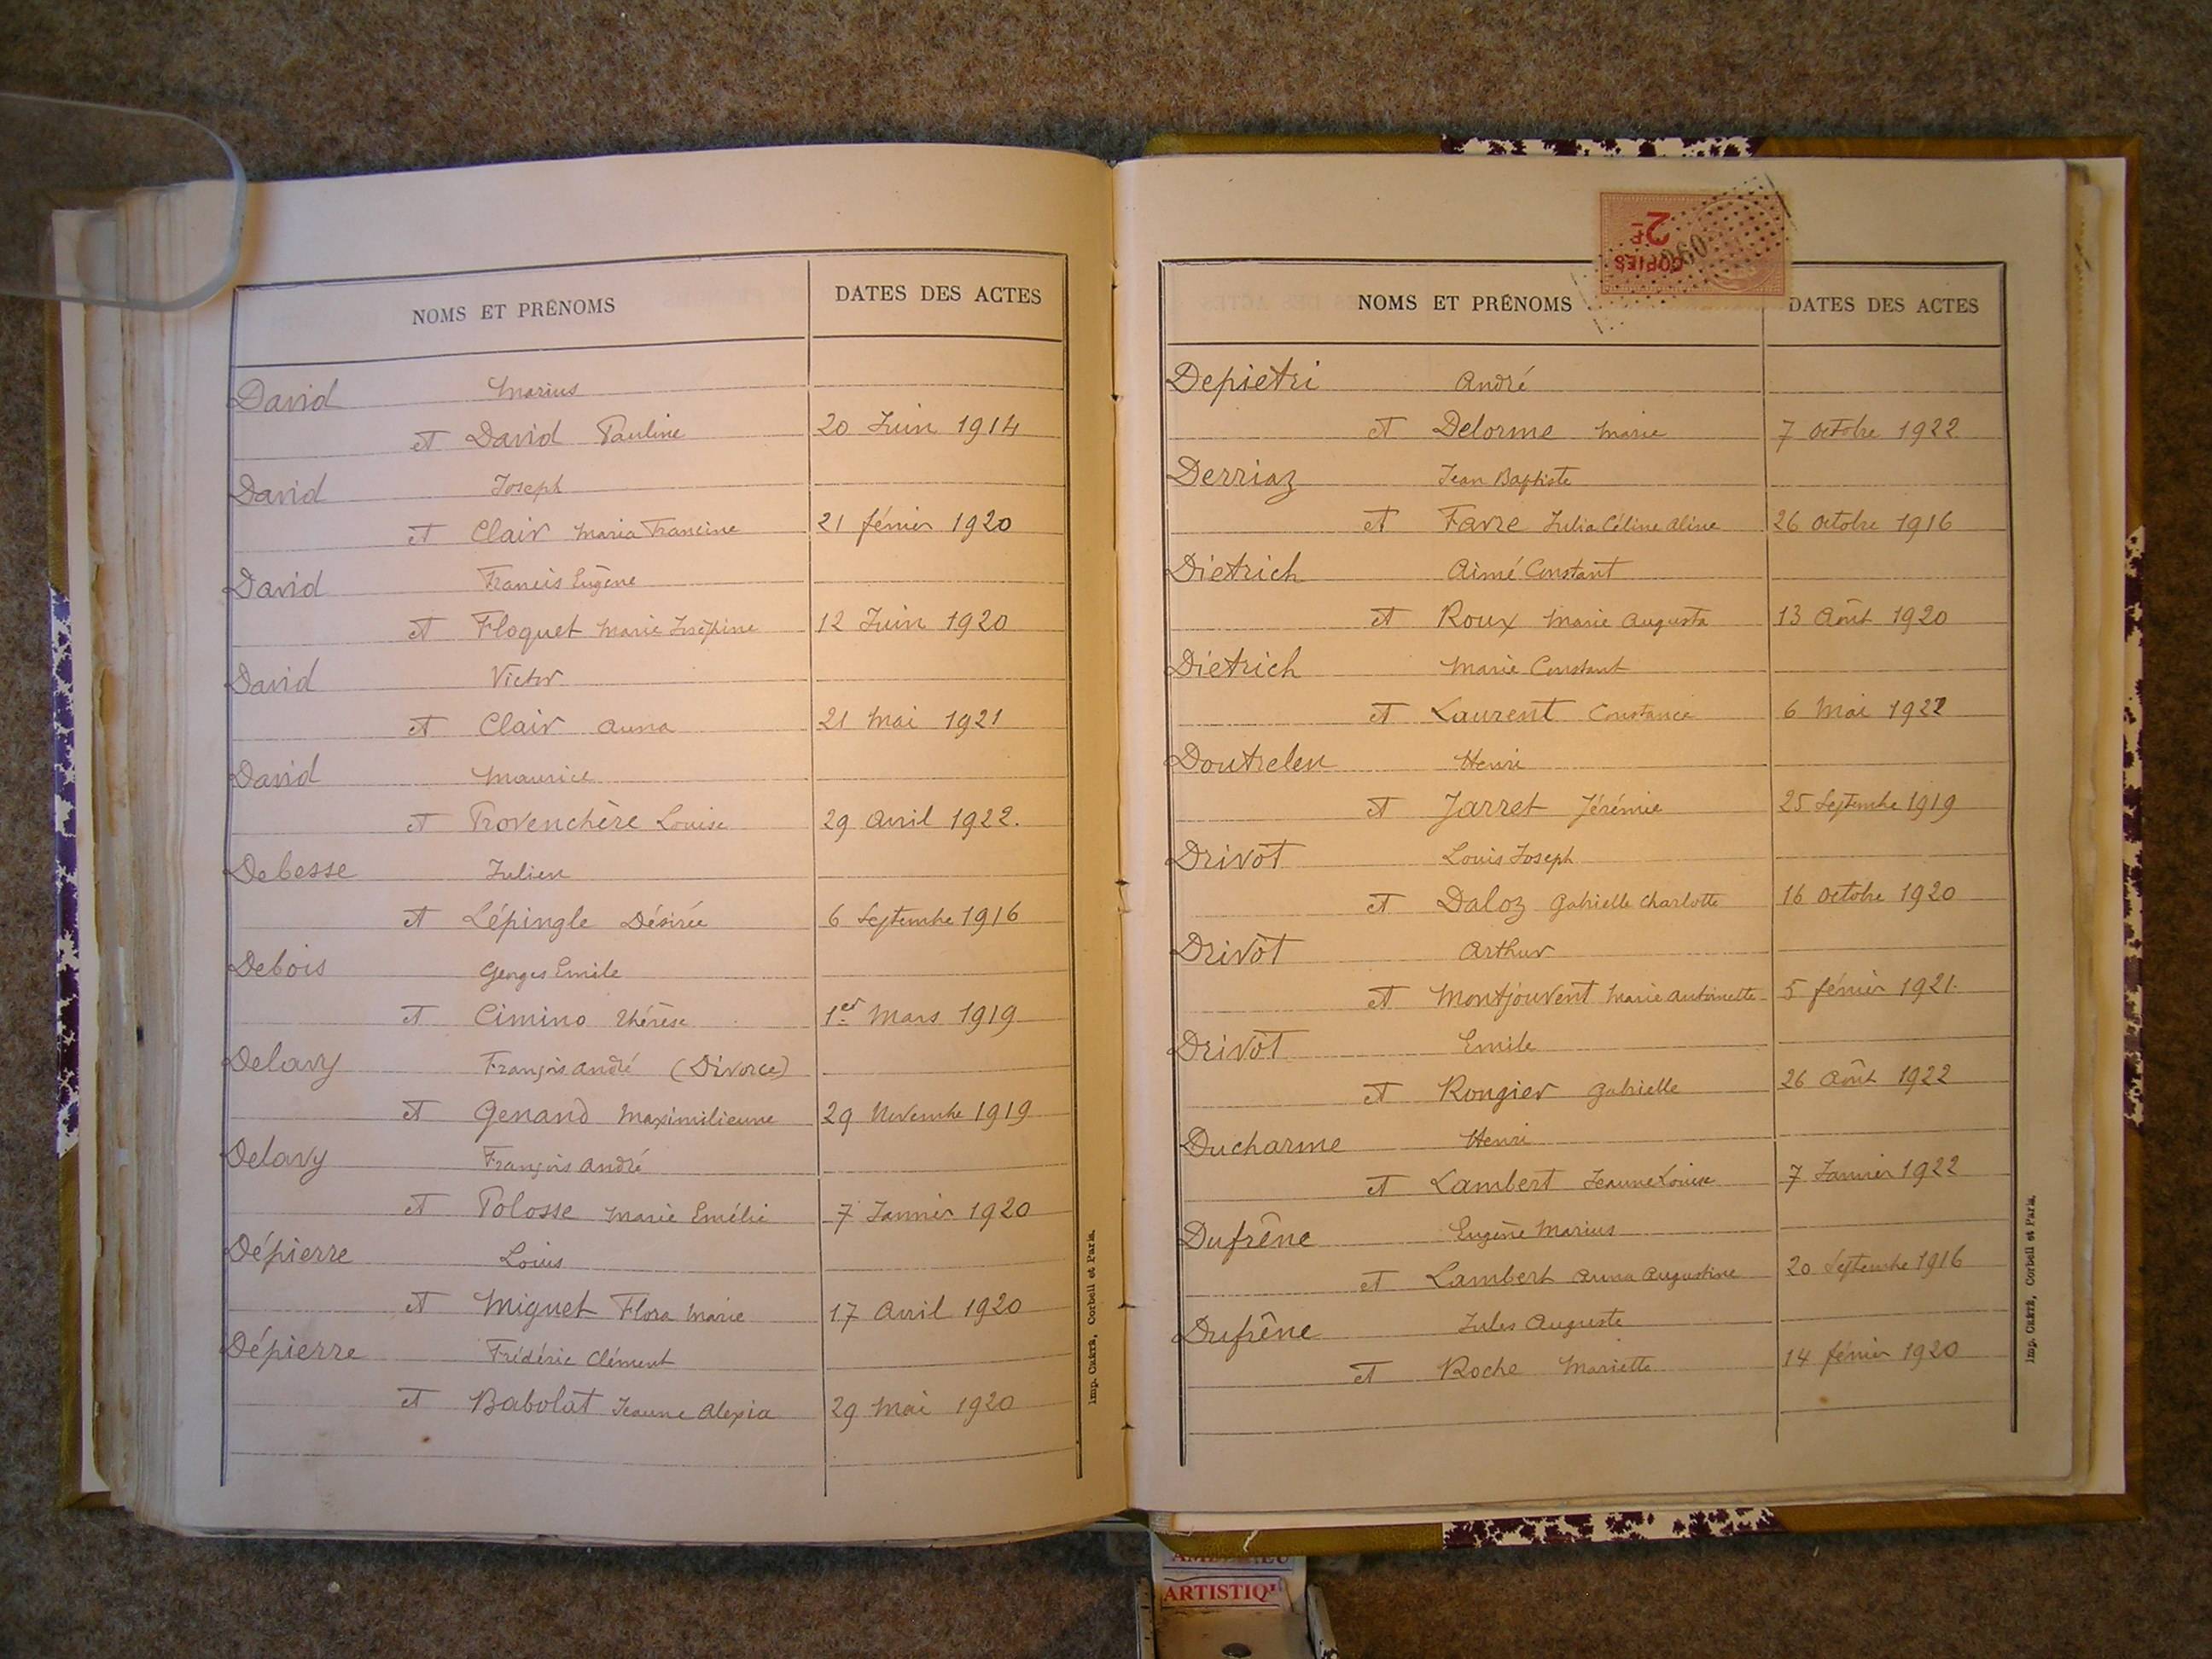 NOMS ET PRÉNOMS DATES DES ACTES
David Marius
et David Pauline 20 Juin 1914
David Joseph
et Clair Maria Francine 21 février 1920
David Francis Eugène
et Floquet Marie Joséphine 12 Juin 1920
David Victor
et Clair Anna 21 Mai 1921
David Maurice
et Provenchère Louise 29 Avril 1922.
Debesse Julien
et Lépingle Désirée 6 Septembre 1916
Debois Georges Emile
et Cimino Thérèse 1er Mars 1919
Delavy François André (Divorce)
et Genand Maximilienne 29 Novembre 1919
Delavy François André
et Polosse Marie Emélie 7 Janvier 1920
Dépierre Louis
et Miguet Flora Marie 17 Avril 1920
Dépierre Frédéric Clément
et Babolat Jeanne Alexia 29 Mai 1920
Imp. CRÉTÉ, Corbeil et Paris.
2F
COPIES
NOMS ET PRÉNOMS DATES DES ACTES
Depietri André
et Delorme Marie 7 Octobre 1922
Derriaz Jean Baptiste
et Favre Julia Céline Aline 26 Octobre 1916
Dietrich Aimé Constant
et Roux Marie Augusta 13 Août 1920
Dietrich Marie Constant
et Laurent Constance 6 Mai 1922
Doutrelen Henri
et Jarret Jérémie 25 Septembre 1919
Drivot Louis Joseph
et Daloz Gabrielle Charlotte 16 Octobre 1920
Drivot Arthur
et Montjouvent Marie Antoinette 5 février 1921.
Drivot Emile
et Rougier Gabrielle 26 Août 1922
Ducharme Henri
et Lambert Jeanne Louise 7 Janvier 1922
Dufrêne Eugène Marius
et Lambert Anna Augustine 20 Septembre 1916
Dufrêne Jules Auguste
et Roche Mariette 14 février 1920
Imp. CRÉTÉ, Corbeil et Paris.
ARTISTIQ